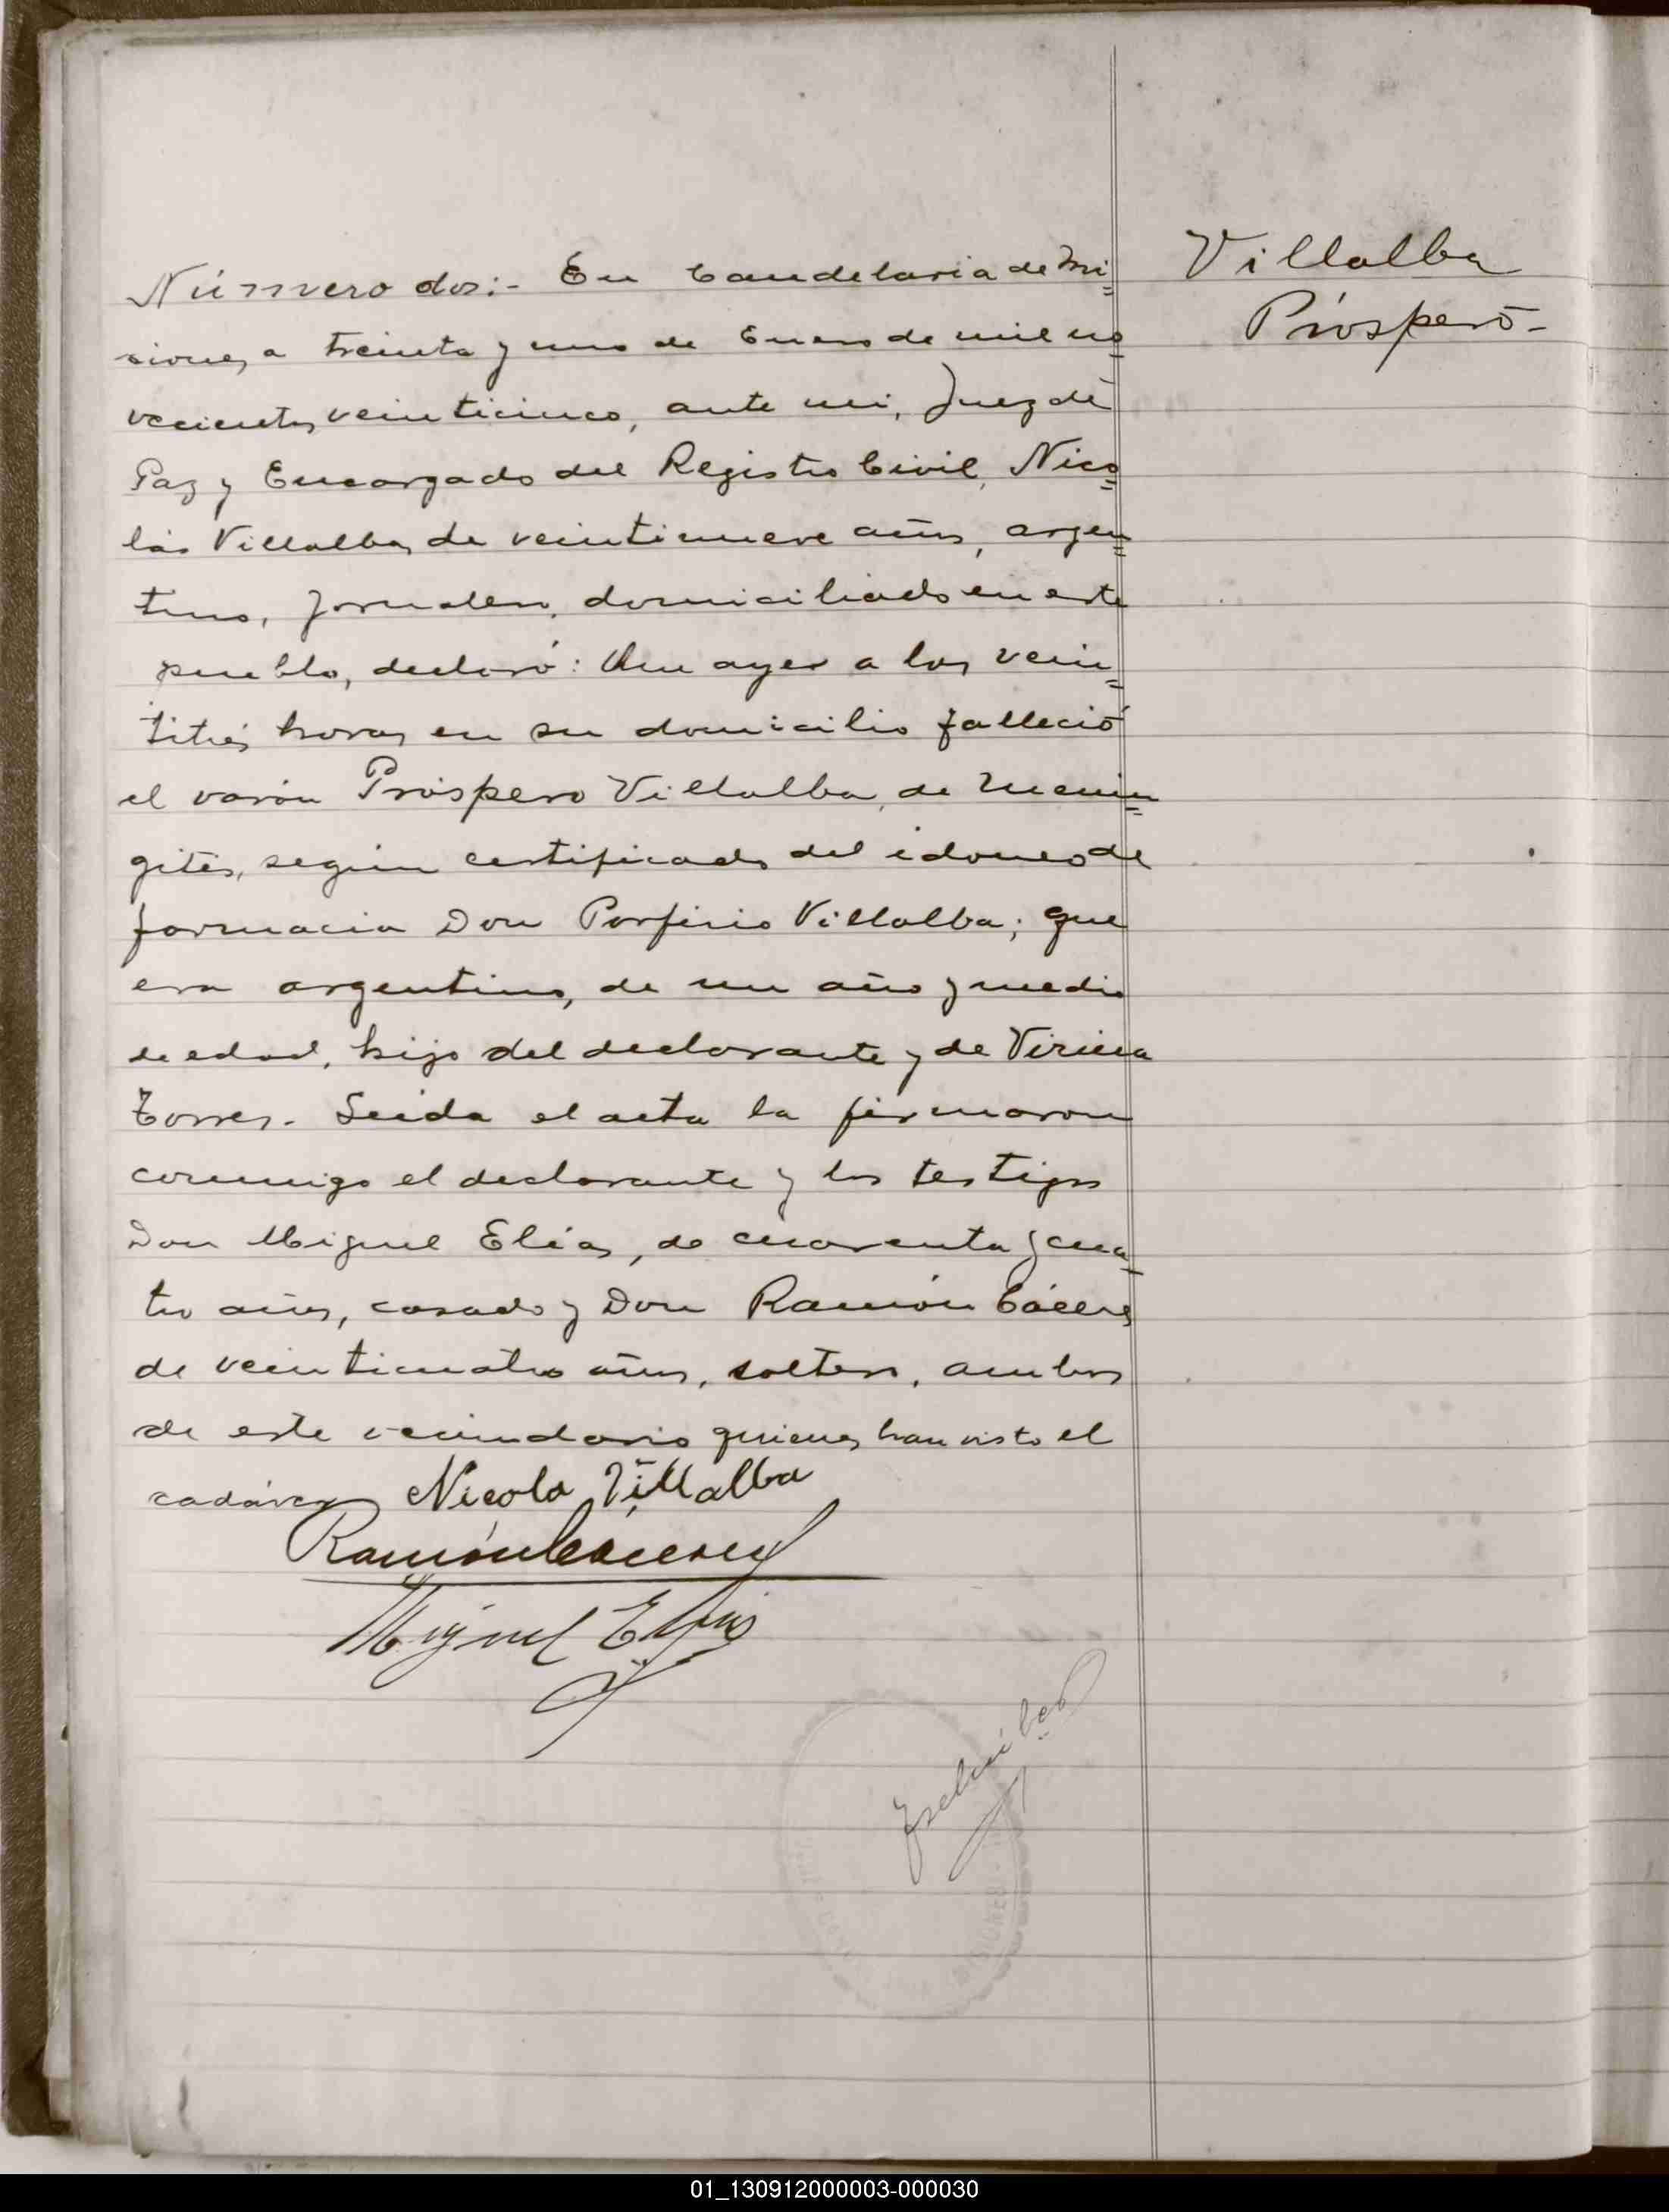 Número dos:- En Candelaria de Mi=
siones, a treinta y uno de Enero de mil no
vecientos veinticinco, ante mi, Juez de
Paz y Encargado del Registro Civil, Nico=
lás Villalba, de veintinueve años, argen=
tino, jornalero, domiciliado en este
pueblo, declaró: Que ayer a las vein=
titrés horas en su domicilio falleció
el varón Próspero Villalba, de menin=
gitis, según certificado del idoneo de
farmacia Don Porfirio Villalba; que
era argentino, de un año y medio
de edad, hijo del declarante y de
Torres.- Leida el acta la firmaron
conmigo el declarante y los testigos
Don Miguel Elias, de cuarenta y cua-
tro años, casado y Don Ramón Cáceres
de veinticuatro años, soltero, ambos
de este vecindario quienes han visto el
cadáver
Nicola Villalba
Ramón Cáceres
Miguel Elias
Villalba
Próspero-
MISIONES
01_130912000003-000030